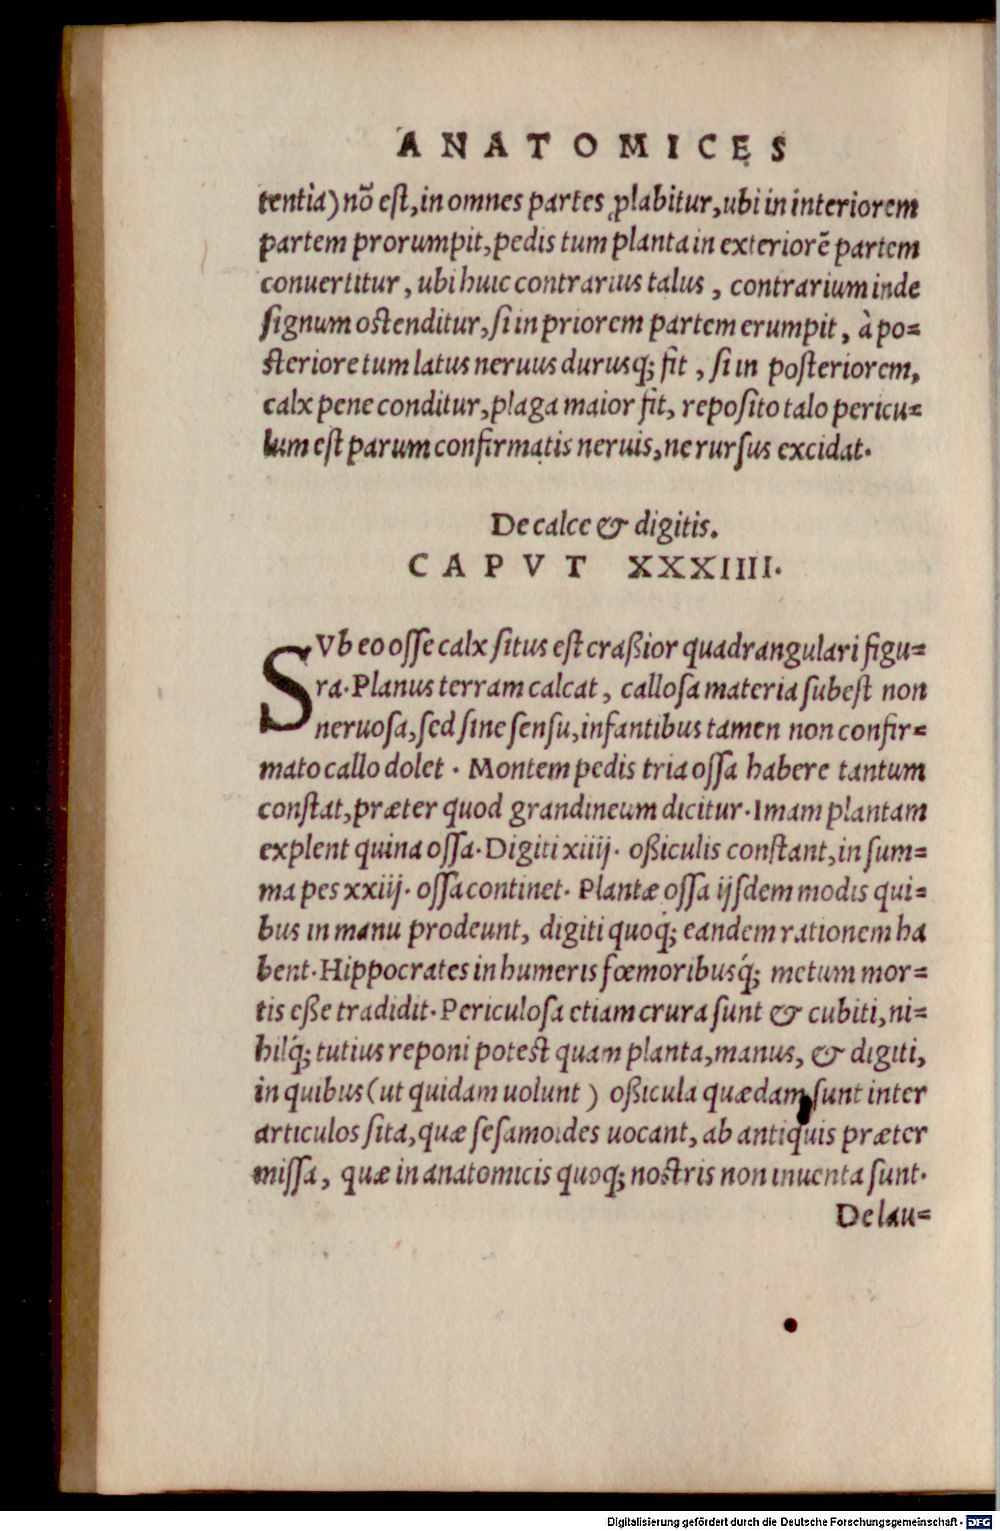 ANATOMICES
tentia) nõ est, in omnes partes ꝓlabitur, ubi in interiorem
partem prorumpit, pedis tum planta in exteriorẽ partem
conuertitur, ubi huic contrarius talus, contrarium inde
signum ostenditur, si in priorem partem erumpit, à po=
steriore tum latus neruus durusq́; fit, si in posteriorem,
calx pene conditur, plaga maior fit, reposito talo pericu=
lum est parum confirmatis neruis, ne rursus excidat.
De calce & digitis.
CAPVT XXXIIII.
SVb eo osse calx situs est craßior quadrangulari figu=
ra. Planus terram calcat, callosa materia subest non
neruosa, sed sine sensu, infantibus tamen non confir=
mato callo dolet. Montem pedis tria ossa habere tantum
constat, præter quod grandineum dicitur. Imam plantam
explent quina ossa. Digiti xiiij. oßiculis constant, in sum=
ma pes xxiij. ossa continet. Plantæ ossa ijsdem modis qui=
bus in manu prodeunt, digiti quoq́; eandem rationem ha
bent. Hippocrates in humeris fœmoribusq́; metum mor=
tis eße tradidit. Periculosa etiam crura sunt & cubiti, ni=
hilq́; tutius reponi potest quam planta, manus, & digiti,
in quibus (ut quidam uolunt) oßicula quædam sunt inter
articulos sita, quæ sesamoides uocant, ab antiquis præter
missa, quæ in anatomicis quoq; nostris non inuenta sunt.
De lau=
Digitalisierung gefördert durch die Deutsche Forschungsgemeinschaft - DFG